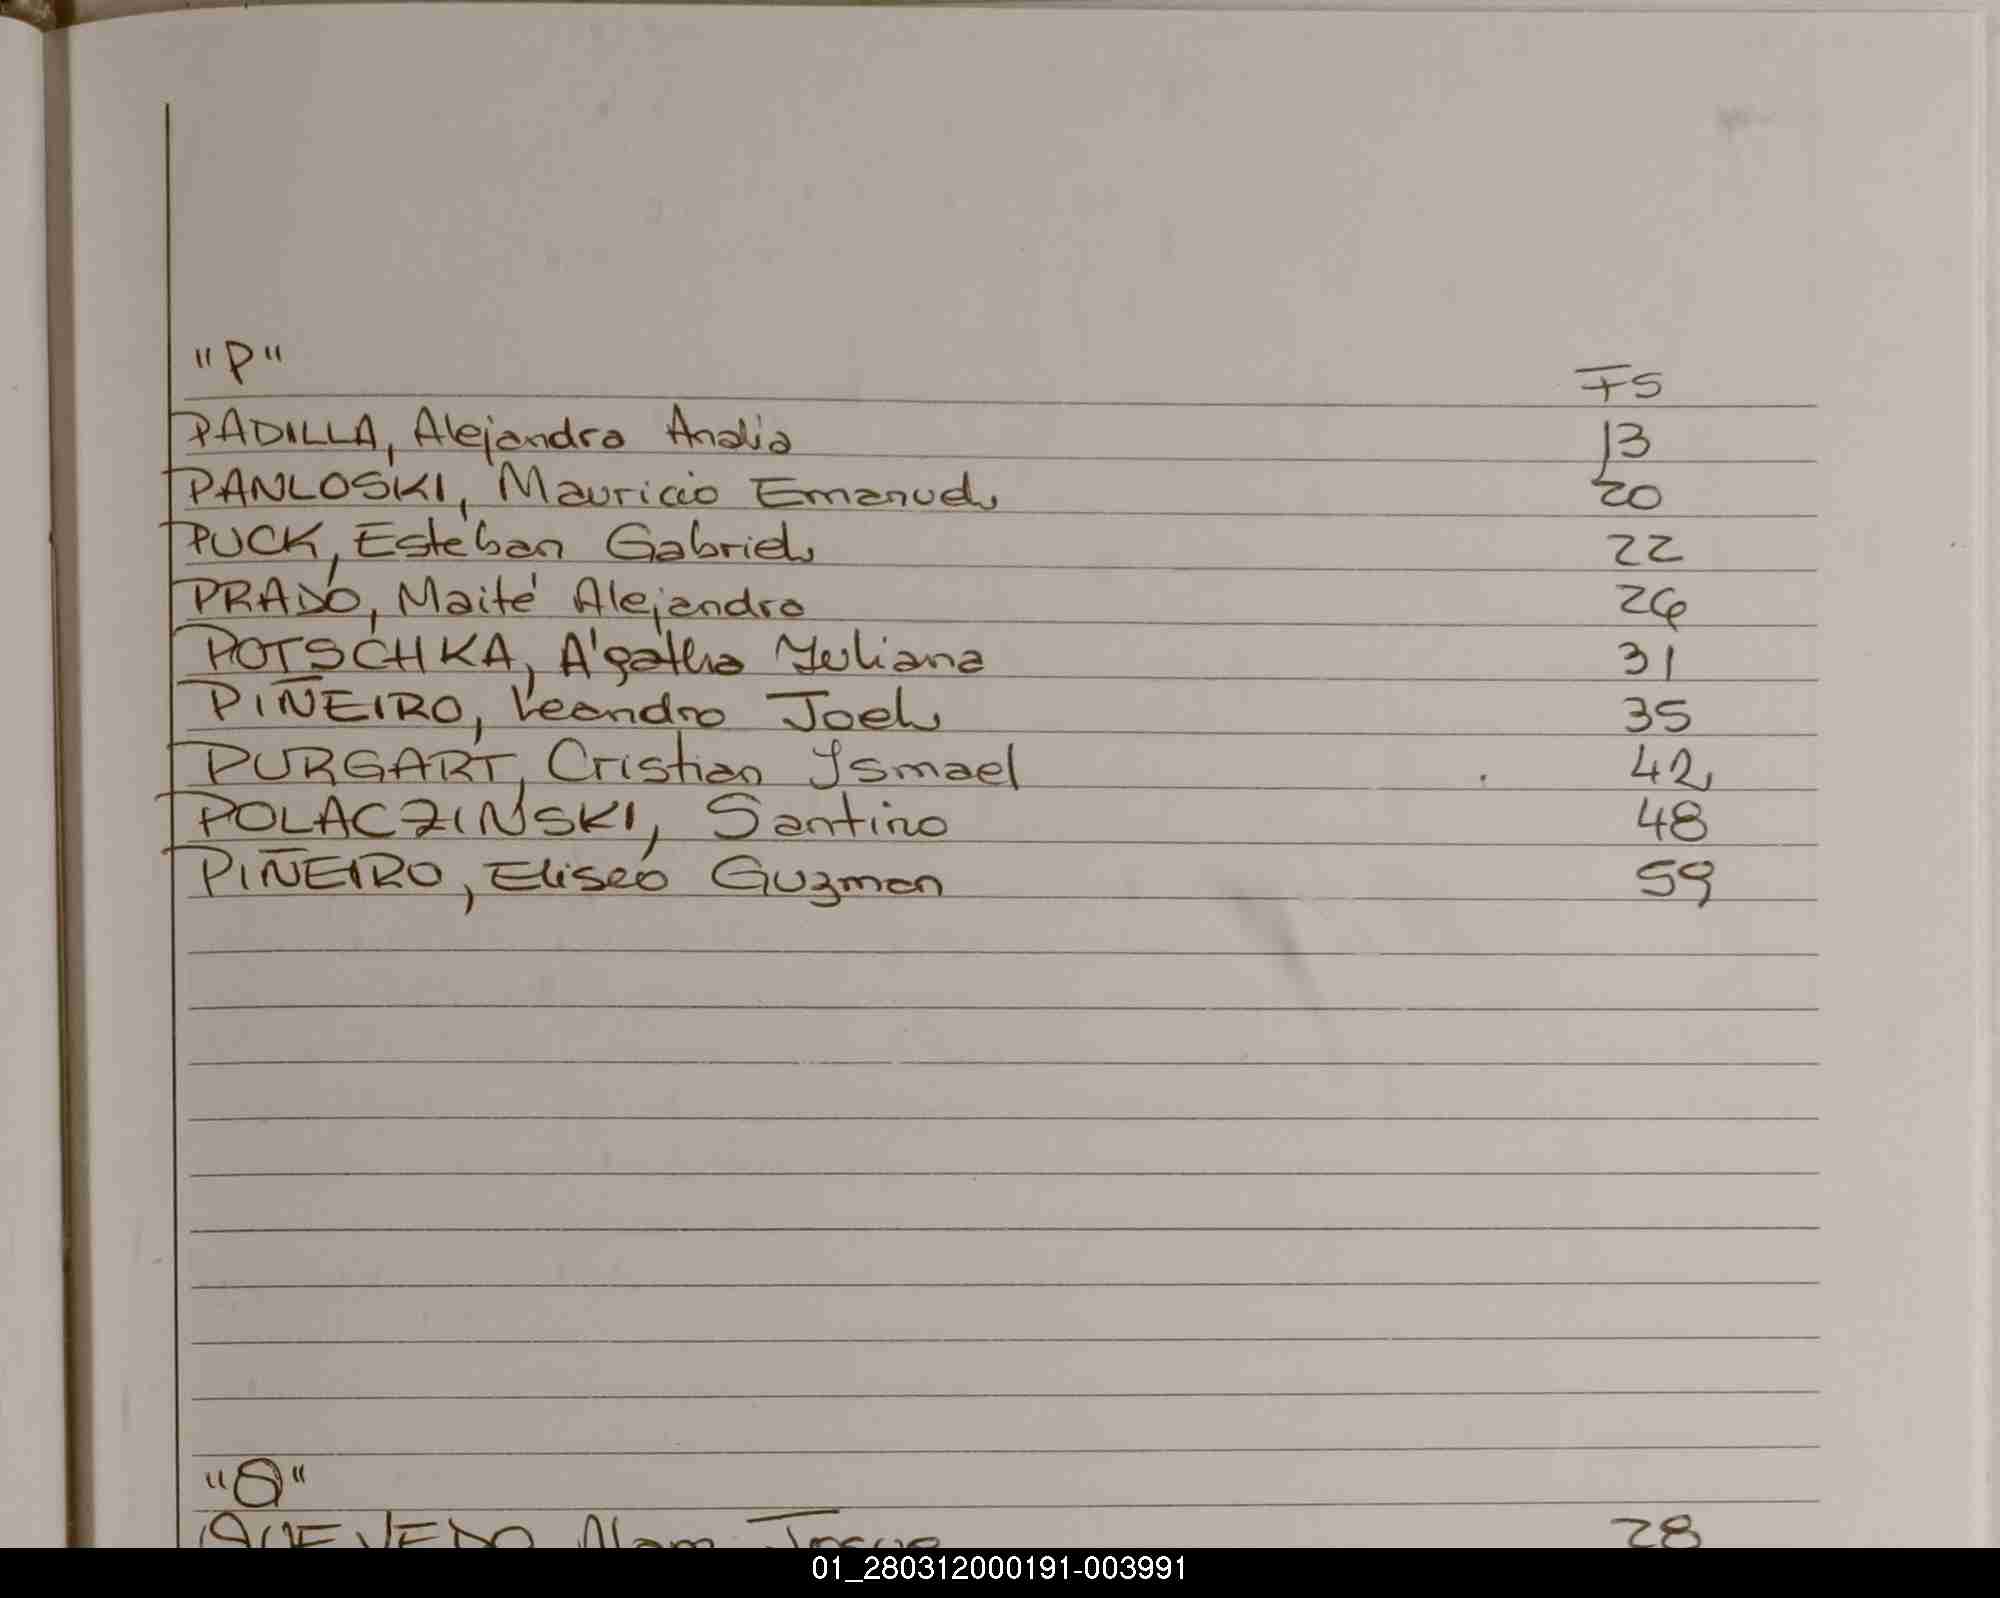 "P"
FS
PADILLA, Alejandra Analia 13
PANLOSKI, Mauricio Emanuel 20
PUCK, Esteban Gabriel 22
PRADO, Maité Alejandra 26
POTSCHKA, Ágatha Yuliana 31
PIÑEIRO, Leandro Joel 35
PURGART, Cristian Ismael 42
POLACZINSKI, Santino 48
PIÑEIRO, Eliseo Guzman 59
"Q"
QUEVEDO Alam Josue 28
01_280312000191-003991